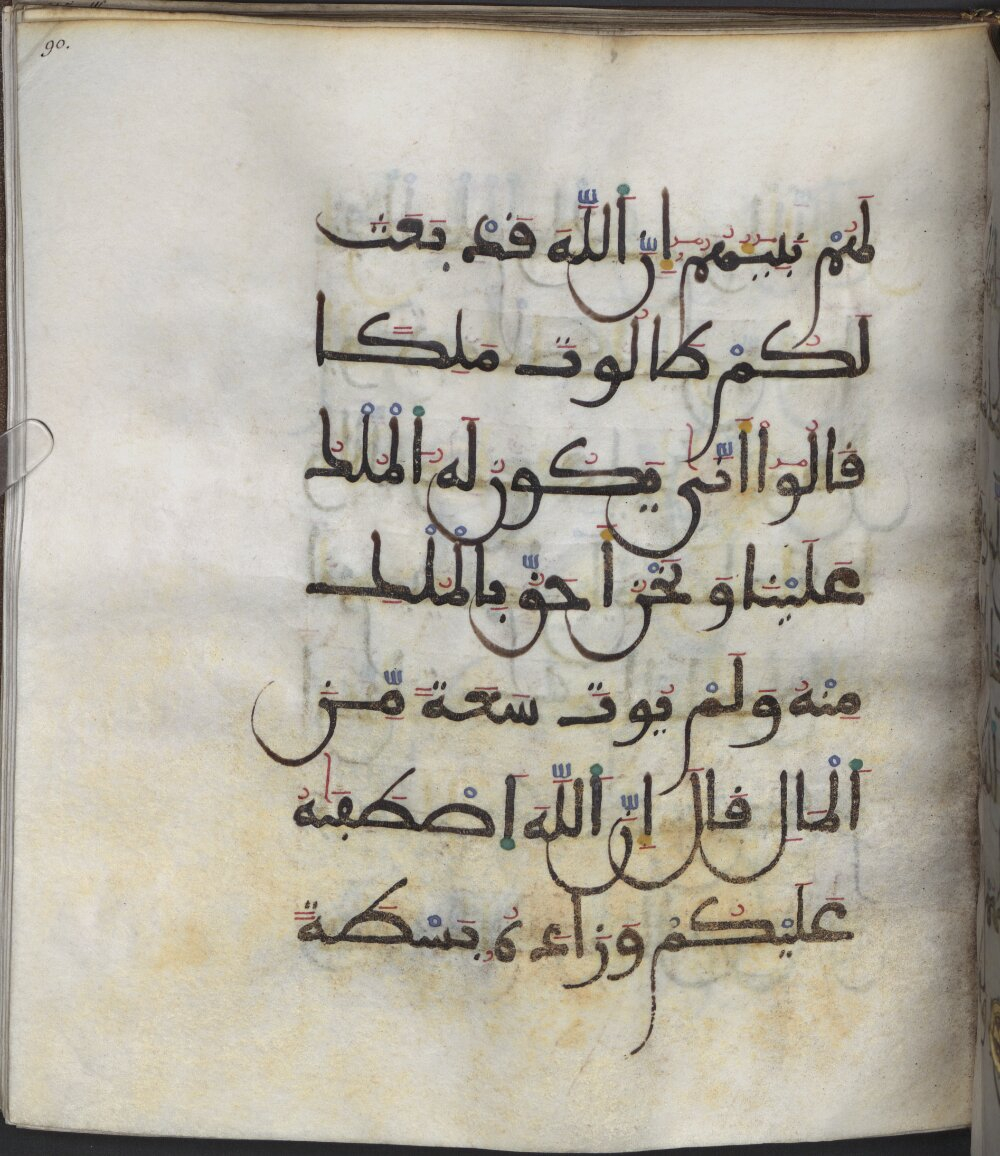 90.
لَهُمْ نَبِيـُٔهُمُ إِنَّ اَ۬للَّهَ قَدْ بَعَثَ
لَكُمْ طَالُوتَ مَلِكاً
قَالُوٓاْ أَنّ۪يٰ يَكُونُ لَهُ اُ۬لْمُلْكُ
عَلَيْنَا وَنَحْنُ أَحَقُّ بِالْمُلْكِ
مِنْهُ وَلَمْ يُوتَ سَعَةً مِّنَ
اَ۬لْمَالِ قَالَ إِنَّ اَ۬للَّهَ اَ۪صْطَف۪يٰهُ
عَلَيْكُمْ وَزَادَهُۥ بَسْطَةً